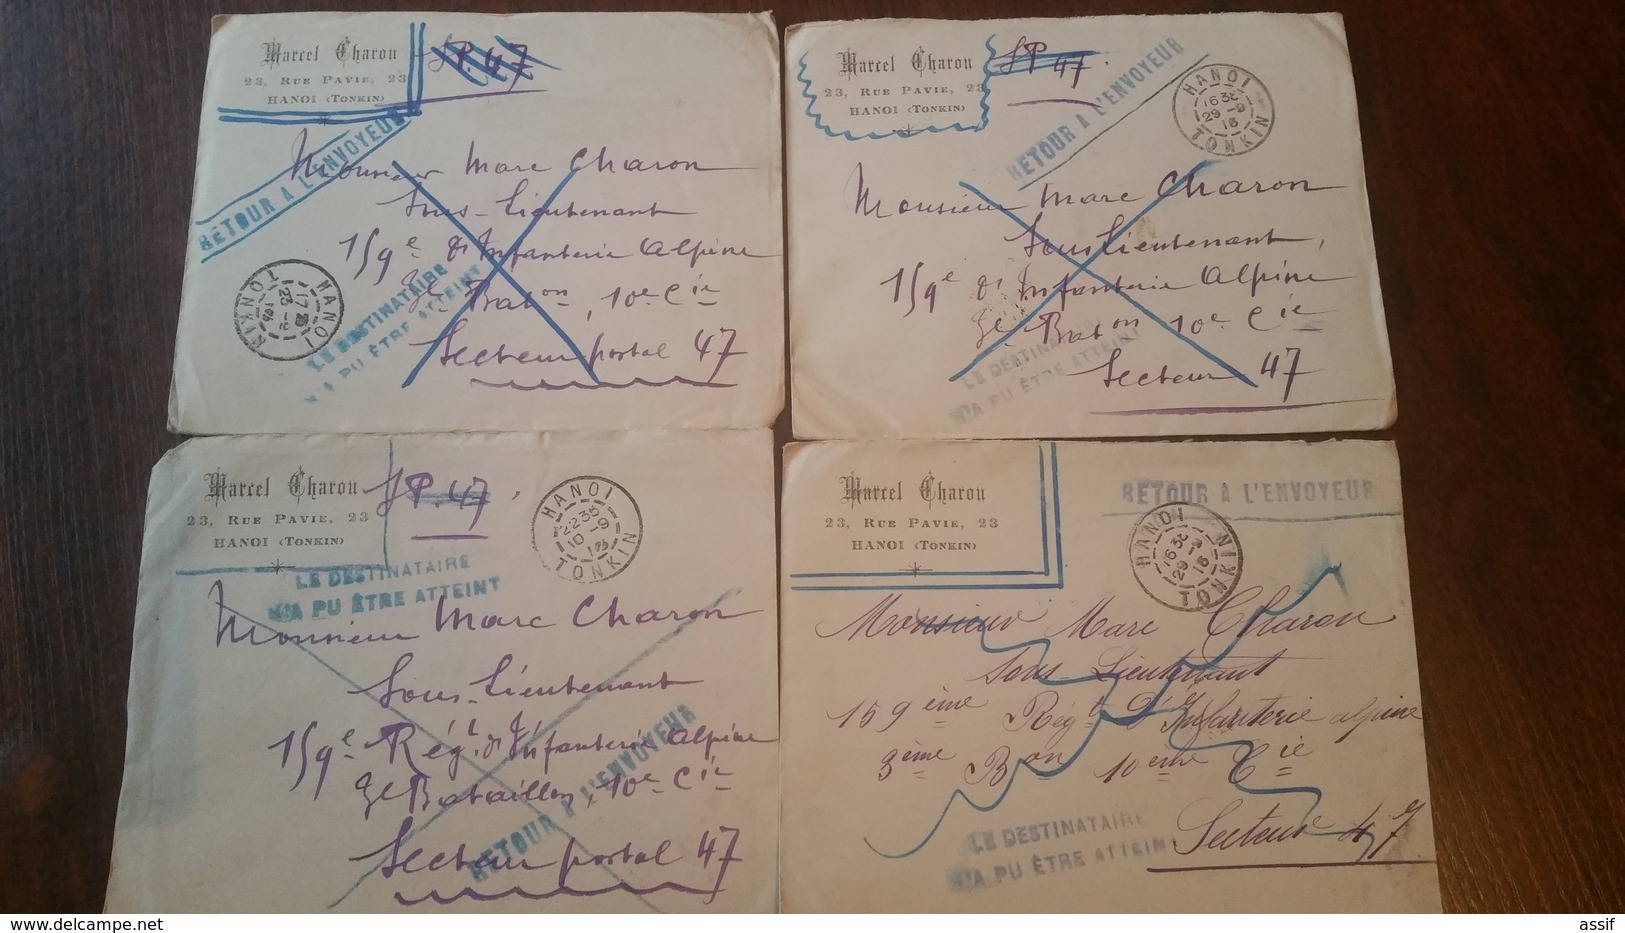 Marcel Charon
23, RUE PAVIE, 23
HANOI (TONKIN)
SP. 47
RETOUR A L'ENVOYEUR
Monsieur Marc Charon
Sous-Lieutenant
159e d'Infanterie Alpine
3e Baton, 10e Cie
Secteur postal 47
LE DESTINATAIRE
N'A PU ÊTRE ATTEINT
HANOI
TONKIN
Marcel Charon
23, RUE PAVIE, 23
HANOI (TONKIN)
SP 47.
RETOUR A L'ENVOYEUR
HANOI
16 35
29 -9
16
TONKIN
Monsieur Marc Charon
Sous Lieutenant,
159e d'Infanterie Alpine
3e Baton 10e Cie
Secteur 47
LE DESTINATAIRE
N'A PU ÊTRE ATTEINT
Marcel Charon
23, RUE PAVIE, 23
HANOI (TONKIN)
SP. 47.
HANOI
22 35
10 -9
TONKIN
LE DESTINATAIRE
N'A PU ÊTRE ATTEINT
Monsieur Marc Charon
Sous-Lieutenant
159e Régt d'Infanterie Alpine
3e Bataillon, 10e Cie
Secteur postal 47
RETOUR A L'ENVOYEUR
Marcel Charon
23, RUE PAVIE, 23
HANOI (TONKIN)
RETOUR A L'ENVOYEUR
HANOI
16 35
29 -9
16
TONKIN
Monsieur Marc Charon
Sous-Lieutenant
159ème Régt d'Infanterie alpine
3ème Bon 10ème Cie
Secteur 47
LE DESTINATAIRE
N'A PU ÊTRE ATTEINT
delcampe.net
assif